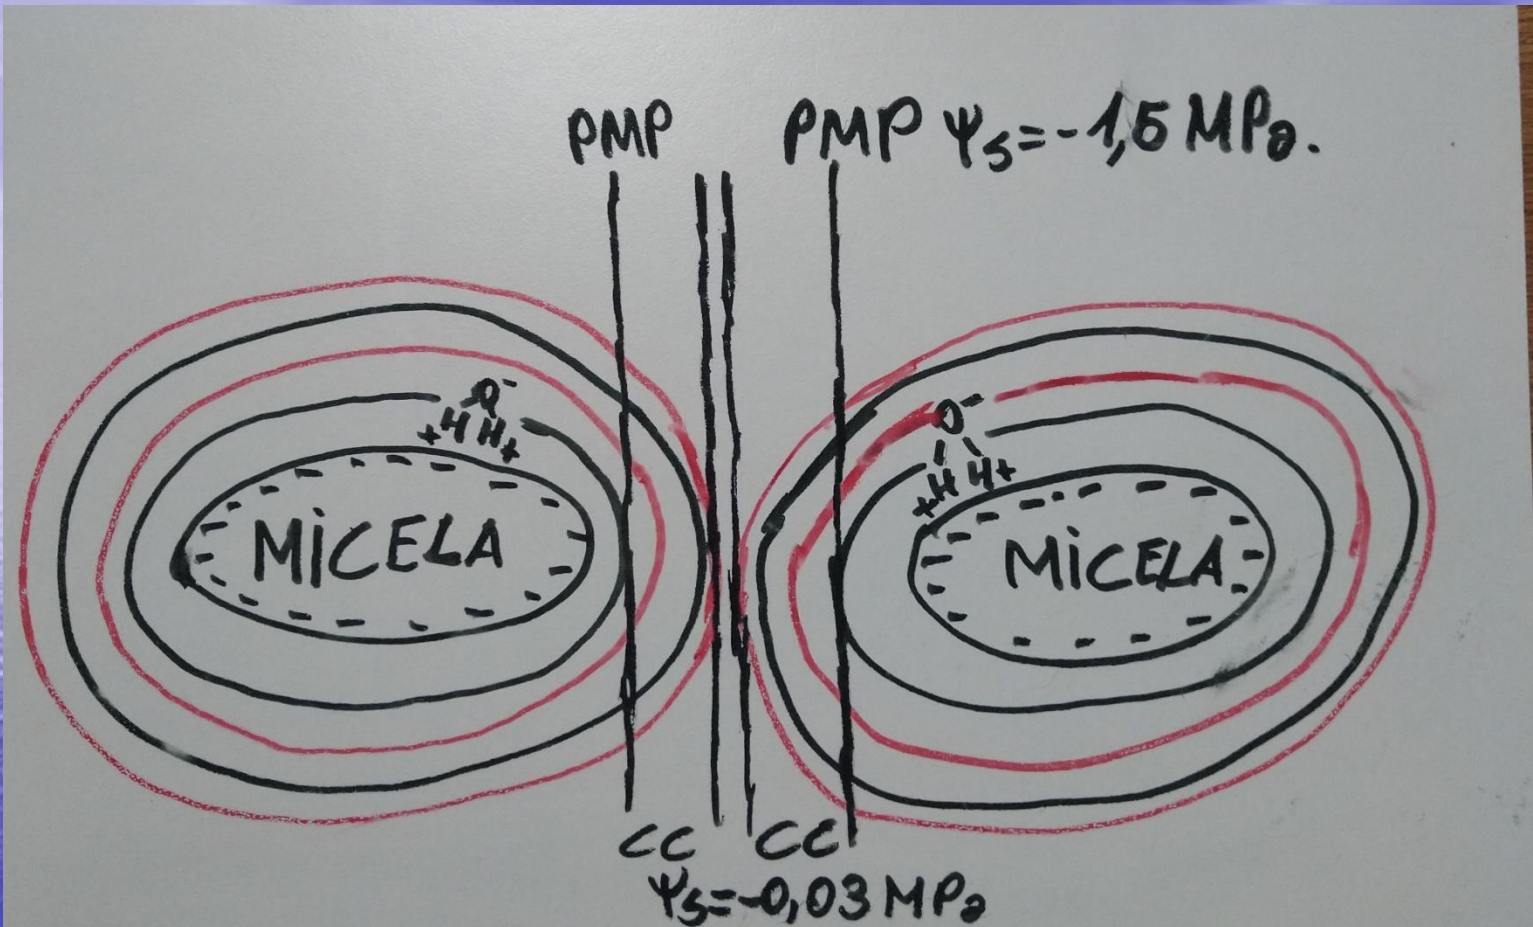 PMP PMP Ψs=-1,5 MPa.
O-
+H H+
O-
+H H+
MiCELA
MiCELA
CC CC
Ψs=-0,03 MPa